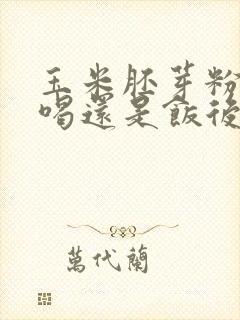 玉米胚芽粉
喝還是飯後
萬代蘭